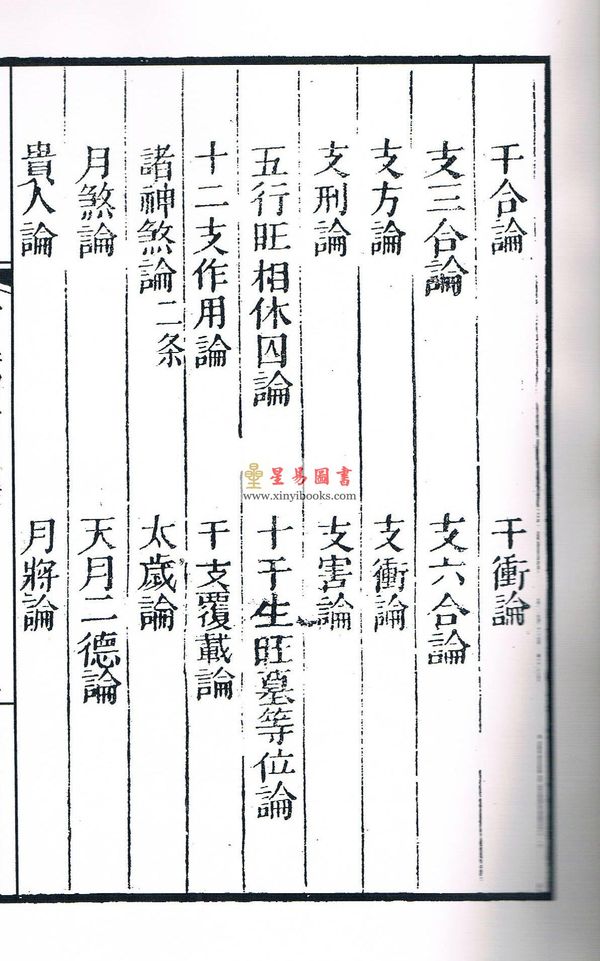 干合論
干衝論
支三合論
支六合論
支方論
支衝論
支刑論
支害論
五行旺相休囚論
十干生旺墓等位論
十二支作用論
干支覆載論
諸神煞論二条
太歲論
月煞論
天月二德論
貴人論
月將論
星易圖書
www.xinyibooks.com